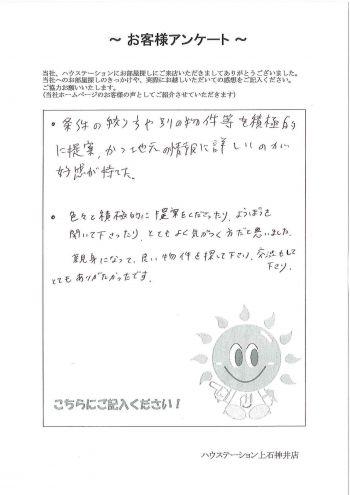 ～ お客様アンケート ～
当社、ハウステーションにお部屋探しにご来店いただきましてありがとうございました。
当社へのお部屋探しのきっかけや、実際にお越しいただいての感想をご記入ください。
ご協力お願いいたします。
(当社ホームページのお客様の声としてご紹介させていただきます)
・条件の絞り方や別の物件等を積極的
に提案、かつ地元の情報に詳しいのが
好感が持てた。
・色々と積極的に提案をくださったり、ようぼうを
聞いて下さったり、とてもよく気がつく方だと思いました。
親身になって、良い物件を探して下さり、交渉もして
下さり、
とてもありがたかったです。
こちらにご記入ください！
ハウステーション上石神井店